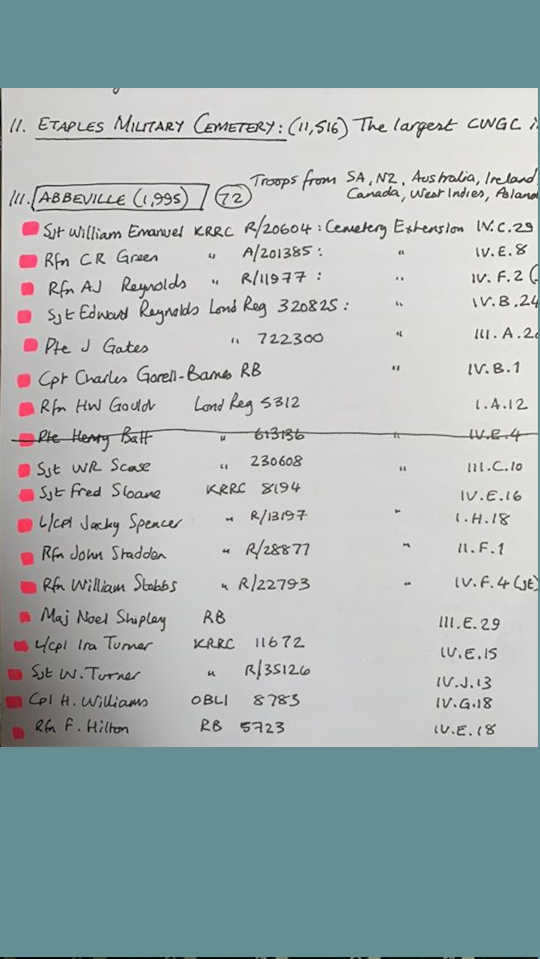 11. ETAPLES MILITARY CEMETERY: (11,516) The largest CWGC
Troops from SA, NZ, Australia, Ireland
Canada, West Indies,
111. ABBEVILLE (1,995) 72
Sjt William Emanuel KRRC R/20604: Cemetery Extension IV.C.29
Rfn CR Green " A/201385: " IV.E.8
Rfn AJ Reynolds " R/11977: " IV.F.2 (
Sjt Edward Reynolds Lond Reg 320825: " IV.B.24
Pte J Gates " 722300 " III.A.
Cpt Charles Gorell-Barnes RB " IV.B.1
Rfn HW Gould Lond Reg 5312 I.A.12
Pte Henry Batt " 613136 " IV.E.4
Sjt WR Scase " 230608 " III.C.10
Sjt Fred Sloane KRRC 8194 IV.E.16
L/cpl Jacky Spencer " R/13197 " I.H.18
Rfn John Stadden " R/28877 " II.F.1
Rfn William Stebbs " R/22793 " IV.F.4 (JE)
Maj Noel Shipley RB III.E.29
L/cpl Ira Turner KRRC 11672 IV.E.15
Sjt W. Turner " R/35126 IV.J.13
Cpl H. Williams OBLI 8783 IV.G.18
Rfn F. Hilton RB 5723 IV.E.18